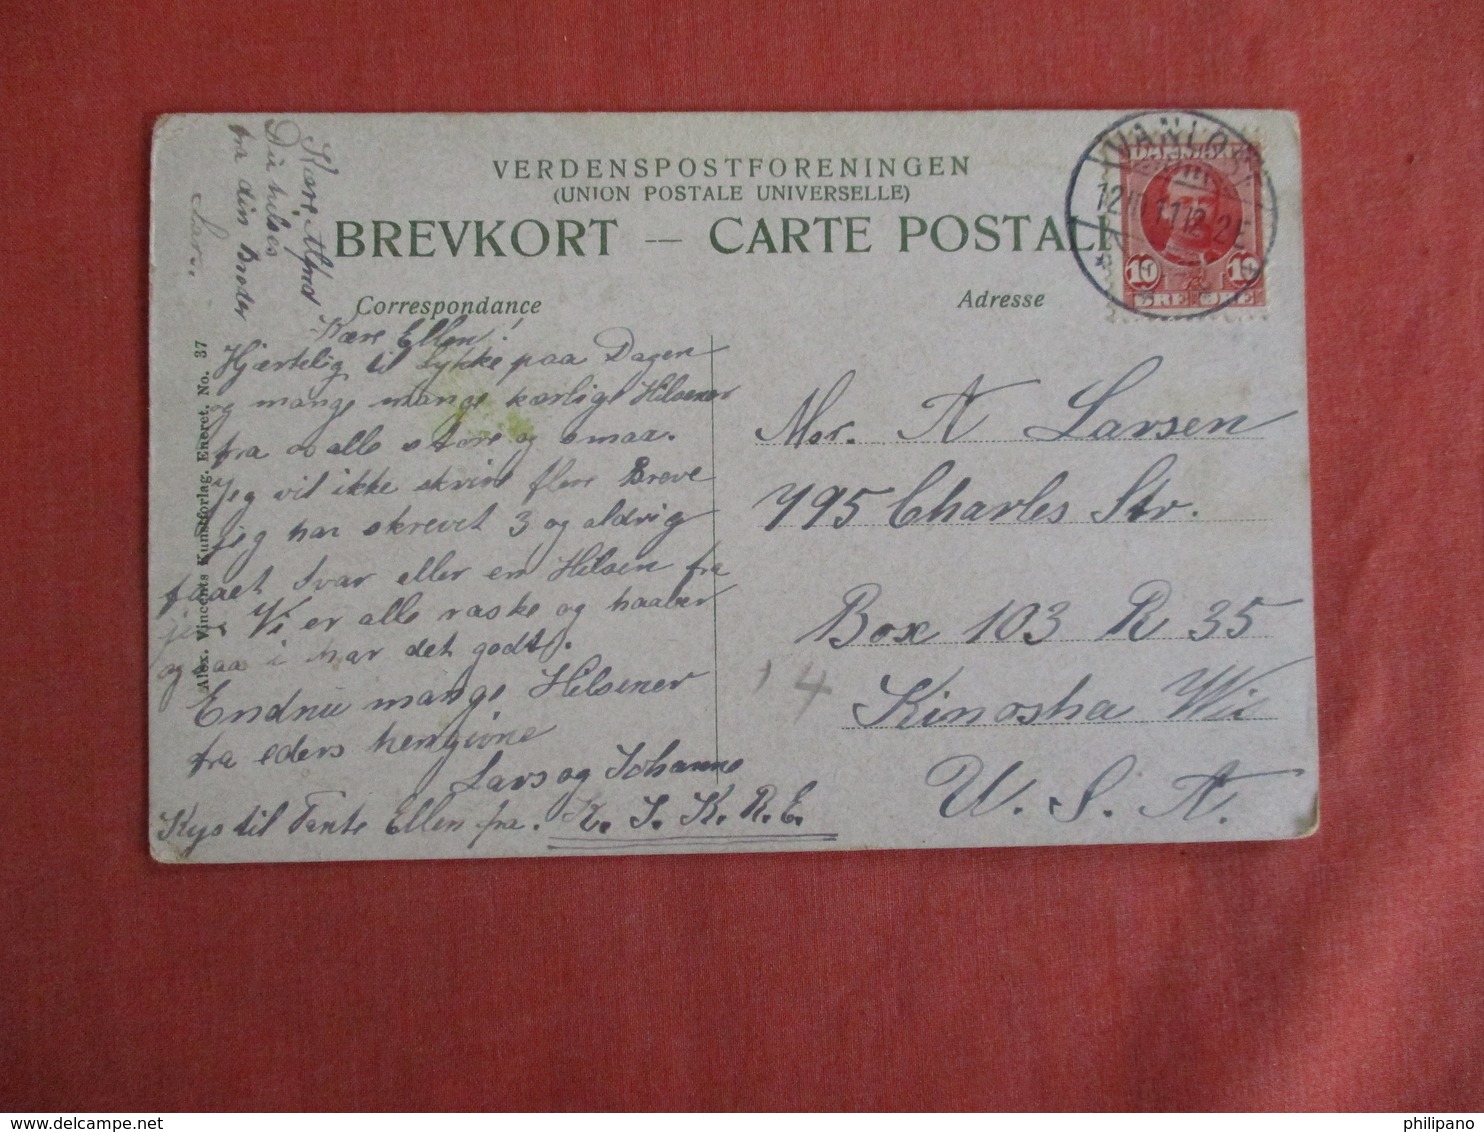 VERDENSPOSTFORENINGEN
(UNION POSTALE UNIVERSELLE)
BREVKORT — CARTE POSTALE
Correspondance
Adresse
VANLØSE
DANMARK
10 10
ØRE ØRE
Kære Alfred
Du hilses
fra din Broder
Lars.
Alex. Vincents Kunstforlag. Eneret. No. 37
Kære Ellen!
Hjærtelig til Lykke paa Dagen
og mange mange kærlige Hilsener
fra os alle store og smaa.
Jeg vil ikke skrive flere Breve
jeg har skrevet 3 og aldrig
faaet Svar eller en Hilsen fra
jer Vi er alle raske og haaber
ogsaa i har det godt.
Endnu mange Hilsener
fra eders hengivne
Lars og Johanne
Kys til Tante Ellen fra. K. S. K. R. E.
Mr. A Larsen
795 Charles Str.
Box 103 R 35
14
Kinosha Wis
U. S. A.
philipano